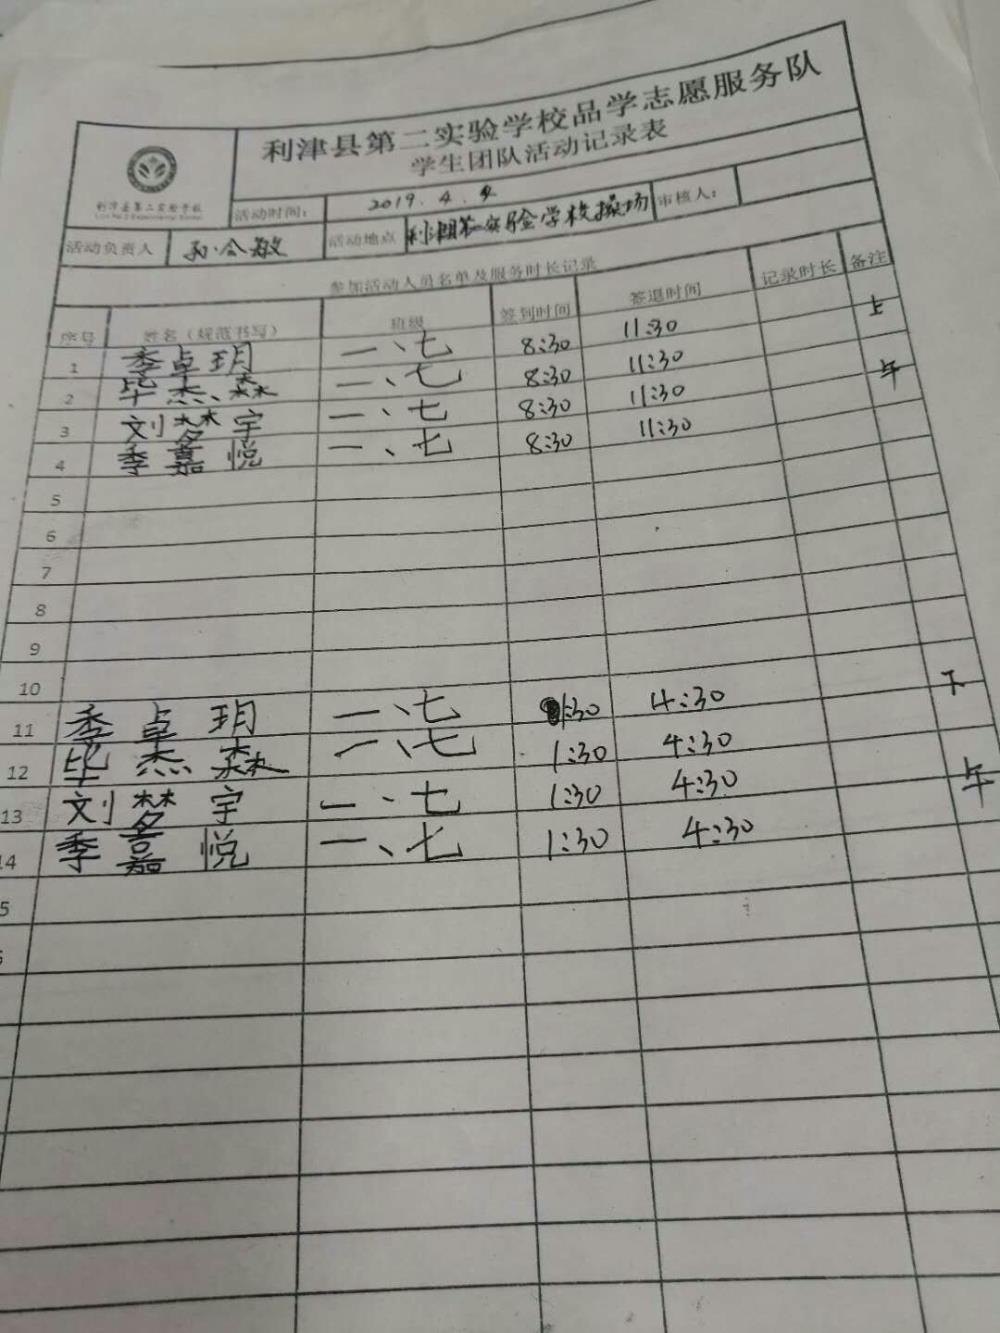 利津县第二实验学校品学志愿服务队
学生团队活动记录表
利津县第二实验学校
活动时间： 2019.4.4 审核人：
活动负责人 孙会敏 活动地点 实验学校操场
参加活动人员名单及服务时长记录
序号 姓名（规范书写） 班级 签到时间 签退时间 记录时长 备注
1 季卓玥 一、七 8:30 11:30 上
2 毕杰森 一、七 8:30 11:30 午
3 刘梦宇 一、七 8:30 11:30
4 季嘉悦 一、七 8:30 11:30
5
6
7
8
9
10
11 季卓玥 一、七 1:30 4:30 下
12 毕杰森 一、七 1:30 4:30
13 刘梦宇 一、七 1:30 4:30 午
14 季嘉悦 一、七 1:30 4:30
5